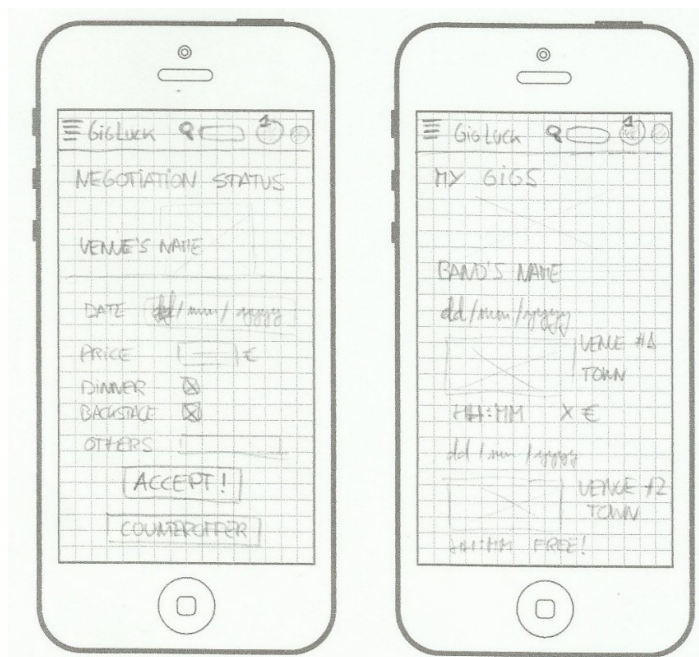 GigLuck 1
NEGOTIATION STATUS
VENUE'S NAME
DATE dd/mm/yyyy
PRICE €
DINNER
BACKSTAGE
OTHERS
ACCEPT!
COUNTEROFFER
GigLuck 1
MY GIGS
BAND'S NAME
dd/mm/yyyy
VENUE #1
TOWN
HH:MM X €
dd/mm/yyyy
VENUE #2
TOWN
HH:MM FREE!